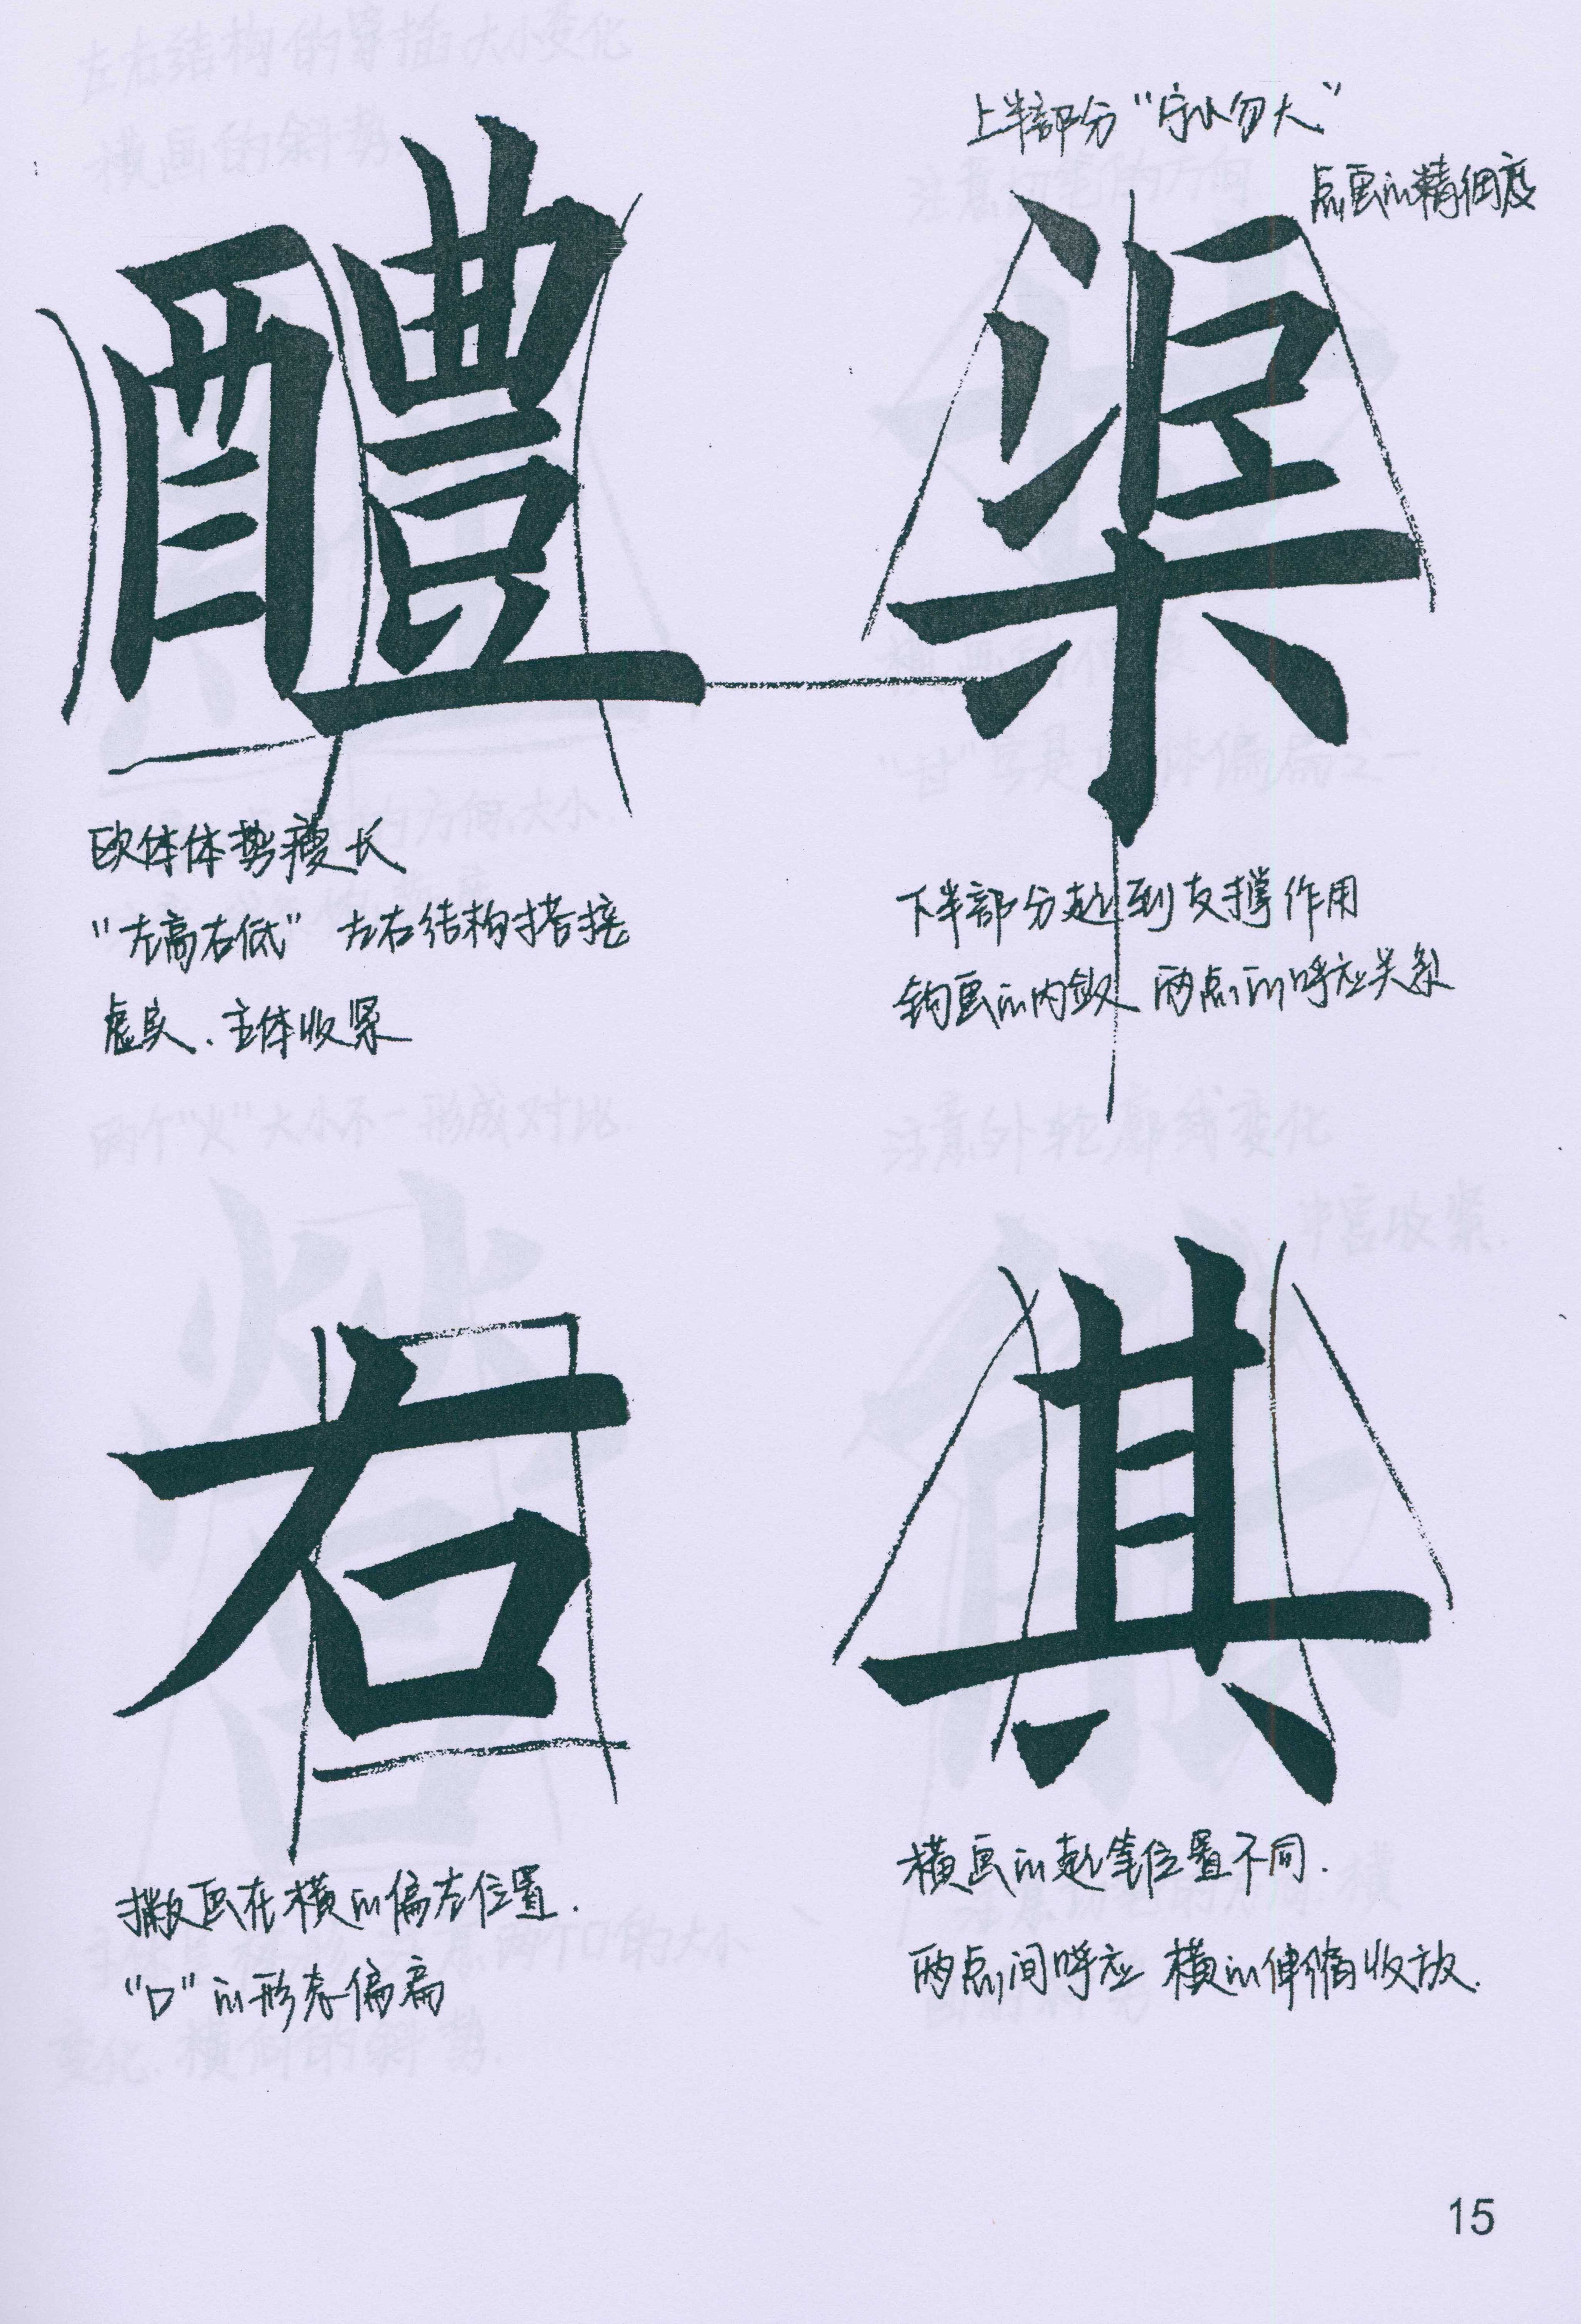 醴
欧体体势瘦长
“左高右低” 左右结构搭接
虚实、主体收紧
上半部分“宁小勿大”
点画的精细度
渠
下半部分起到支撑作用
钩画的内敛 两点的呼应关系
右
撇画在横的偏左位置.
“口”的形态偏扁
其
横画的起笔位置不同.
两点间呼应 横的伸缩收放.
15